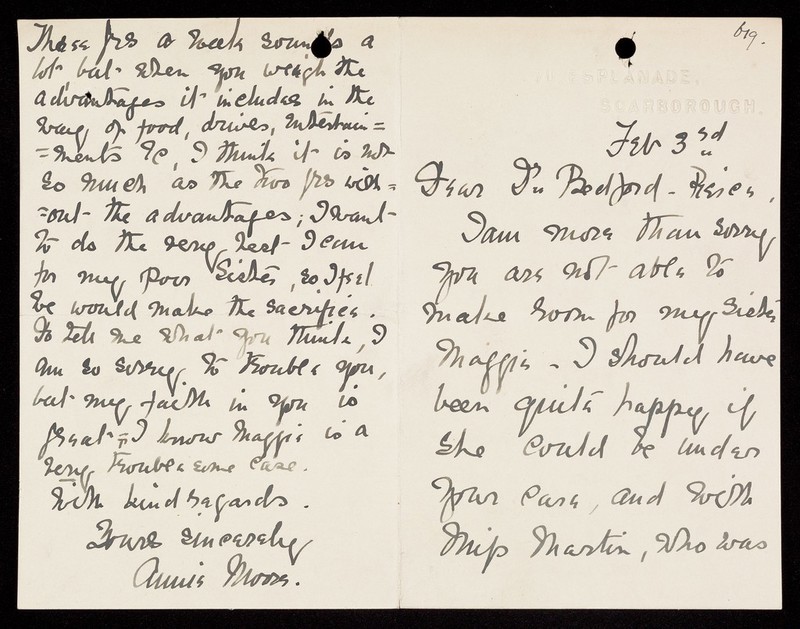 619.
ESPLANADE.
SCARBOROUGH.
Feb 3rd
Dear Dr Bedford-Pierce,
I am more than sorry
you are not able to
make room for my Sister
Maggie - I should have
been quite happy if
she could be under
your care, and with
Miss Martin, who was
Three gs a week sounds a
lot but when you weigh the
advantages it includes in the
way of food, drives, entertain=
=ments &c, I think it is not
so much as the two gs with=
=out the advantages; I want
to do the very best I can
for my poor Sister, so I feel
we would make the sacrifice.
Do tell me what you think, I
am so sorry to trouble you,
but my faith in you is
great - I know Maggie is a
very troublesome case.
With kind regards.
Yours sincerely
Annie Moore.